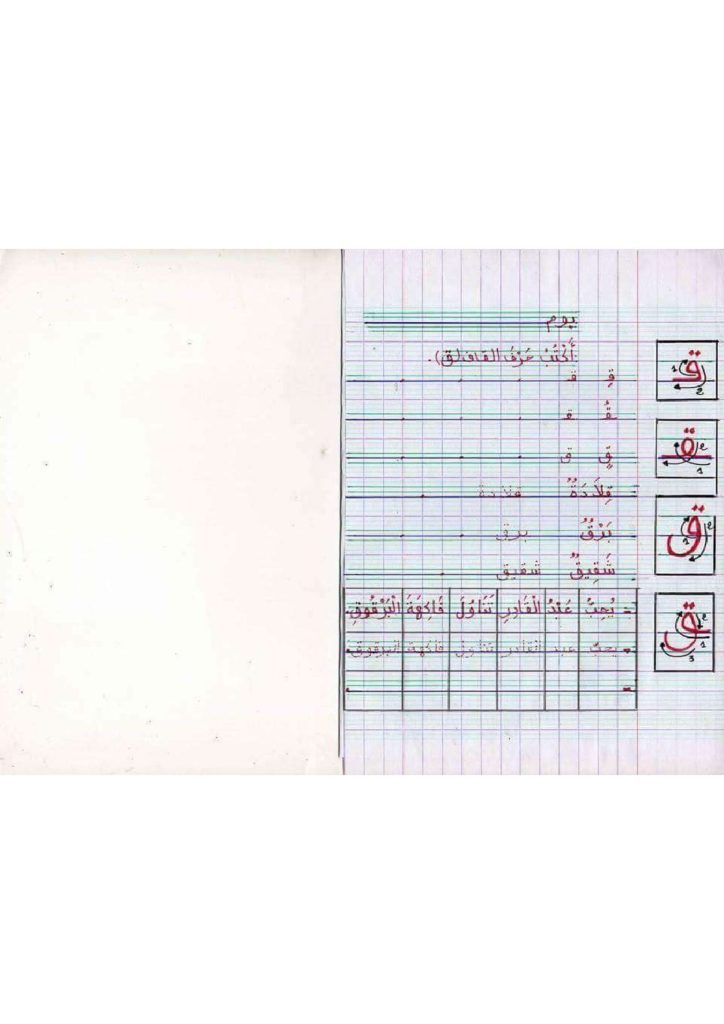 يوم
أَكْتُبُ حَرْفَ القاف (ق).
قِ قـ
قُ ـقـ
قٍ ق
قِلَادَةٌ قلادة
بَرْقٌ برق
شَقِيقٌ شقيق
- يُحِبُّ عَبْدُ الْقَادِرِ تَنَاوُلَ فَاكِهَةَ الْبَرْقُوقِ.
- يحبّ عبد القادر تناول فاكهة البرقوق.
-
قـ 1 2
ـقـ 1 2
ق 1 2
ـق 1 2 3